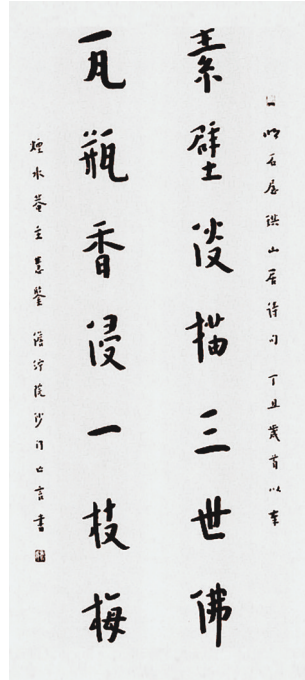 明石屋珙山居詩句 丁丑歲首以奉
素壁淡描三世佛
瓦瓶香浸一枝梅
煙水菴主慧鑒 院沙門亡言書